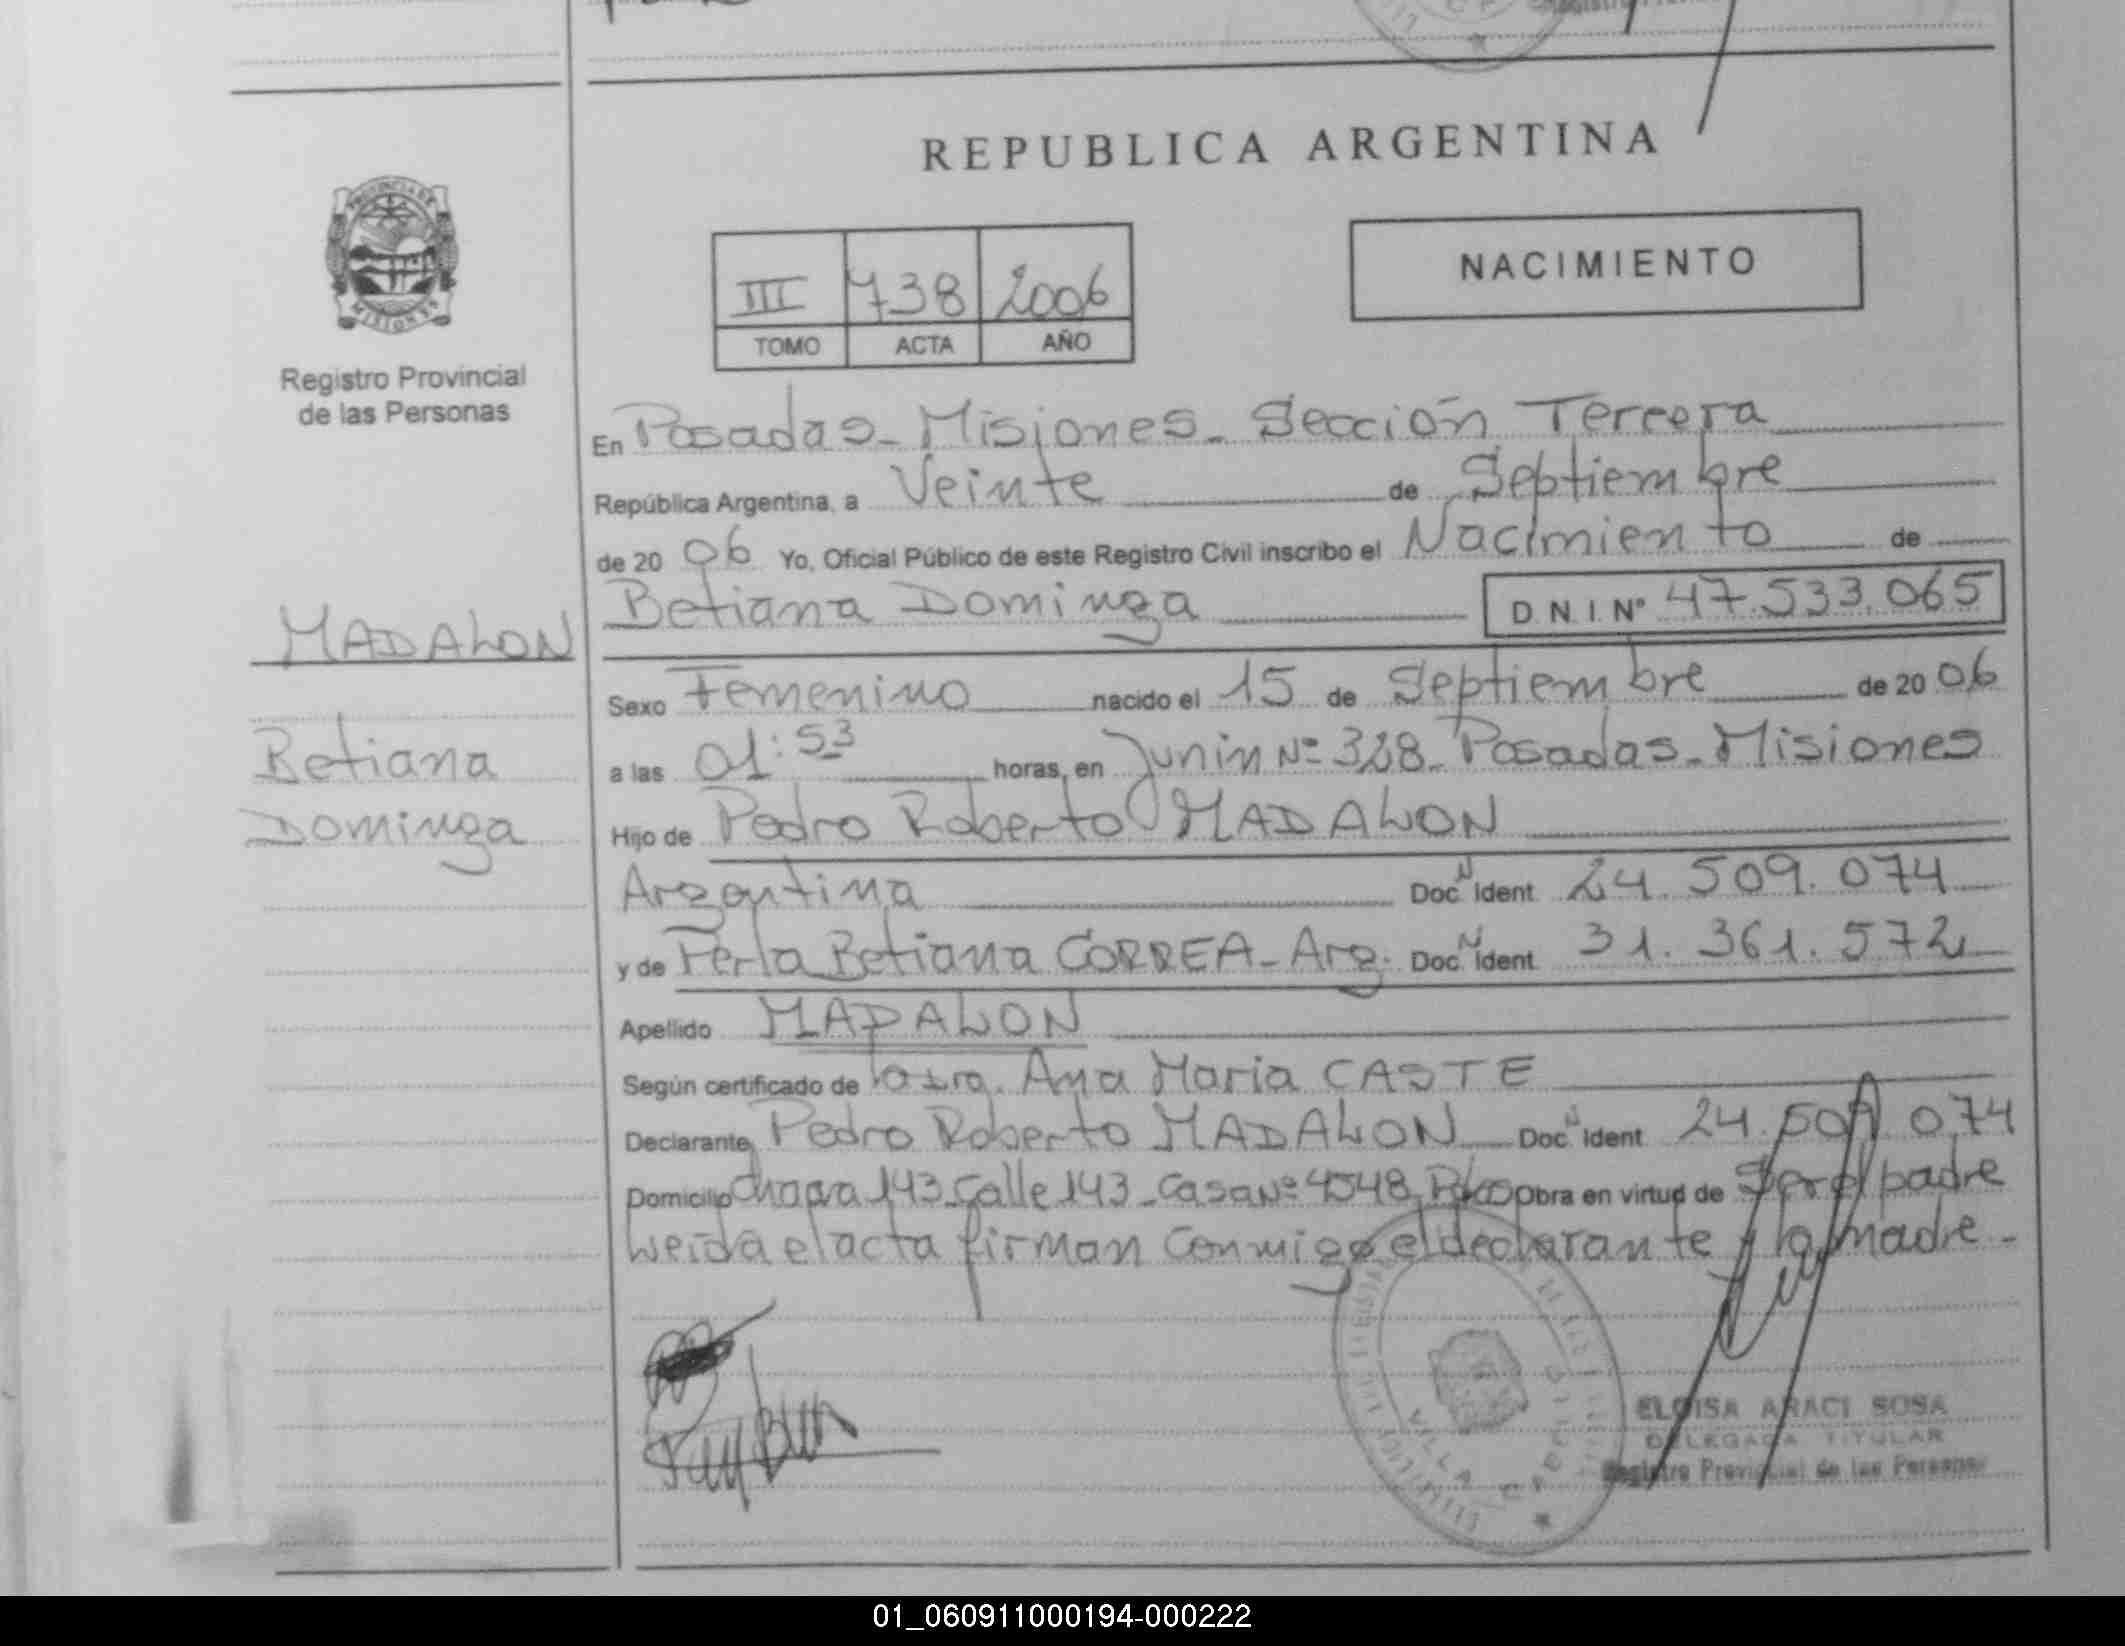 REPUBLICA ARGENTINA
PROVINCIA DE
MISIONES
Registro Provincial
de las Personas
III 738 2006
TOMO ACTA AÑO
NACIMIENTO
En Posadas - Misiones - Sección Tercera
República Argentina, a Veinte de Septiembre
de 20 06 Yo, Oficial Público de este Registro Civil inscribo el Nacimiento de
Betiana Dominga D.N.I. Nº 47.533.065
MADALON
Betiana
Dominga
Sexo Femenino nacido el 15 de Septiembre de 20 06
a las 01:53 horas, en Junin Nº 328 - Posadas - Misiones
Hijo de Pedro Roberto MADALON
Argentina Doc. N Ident. 24.509.074
y de Perla Betiana CORREA - Arg. Doc. N Ident. 31.361.572
Apellido MADALON
Según certificado de la Lra. Ana Maria CASTE
Declarante Pedro Roberto MADALON Doc. N Ident. 24.509.074
Domicilio Chacra 143 - Calle 143 - Casa Nº 4548, Pdas Obra en virtud de Ser el padre
Leida el acta firman Conmigo el declarante y la madre -
VILLA CABELLO
ELOISA ARACI SOSA
DELEGADA TITULAR
Registro Provincial de las Personas
01_060911000194-000222